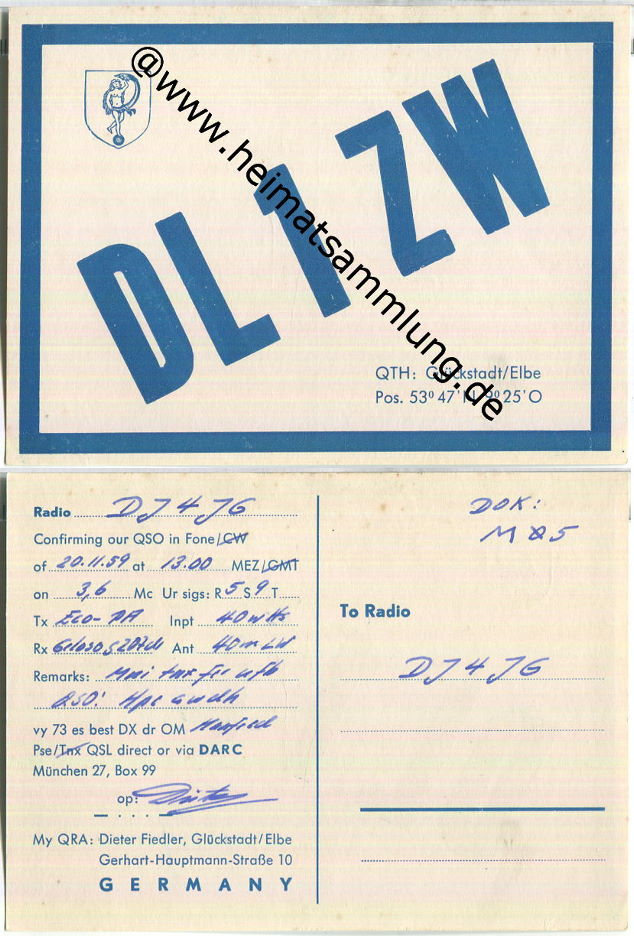 @www.heimatsammlung.de
DL1ZW
QTH: Glückstadt/Elbe
Pos. 53° 47' N 9° 25' O
Radio DJ4JG
Confirming our QSO in Fone/CW
of 20.11.59 at 13.00 MEZ/GMT
on 3,6 Mc Ur sigs: R 5 S 9 T
Tx Eco-PA Inpt 40 watts
Rx Geloso G207 Ant 40m LW
Remarks: Mni tnx fer ufb
QSO! Hpe awdh
vy 73 es best DX dr OM Manfred
Pse/Tnx QSL direct or via DARC
München 27, Box 99
op: Dieter
My QRA: Dieter Fiedler, Glückstadt/Elbe
Gerhart-Hauptmann-Straße 10
GERMANY
DOK:
M05
To Radio
DJ4JG